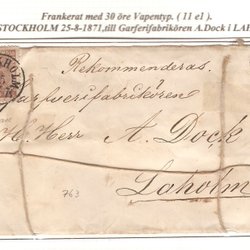 Frankerat med 30 öre Vapentyp. ( 11 e1 ).
STOCKHOLM 25-8-1871,till Garferifabrikören A.Dock i LAH
Rekommenderas.
Garfverifabrikören
H. Herr A. Dock
Laholm
763